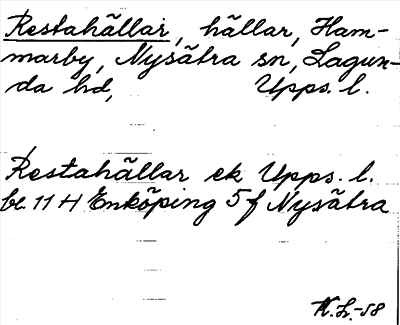 Restahällar, hällar, Ham-
marby, Nysätra sn, Lagun-
da hd, Upps. l.
Restahällar ek Upps. l.
bl. 11 H Enköping 5 f Nysätra
N.L.-58